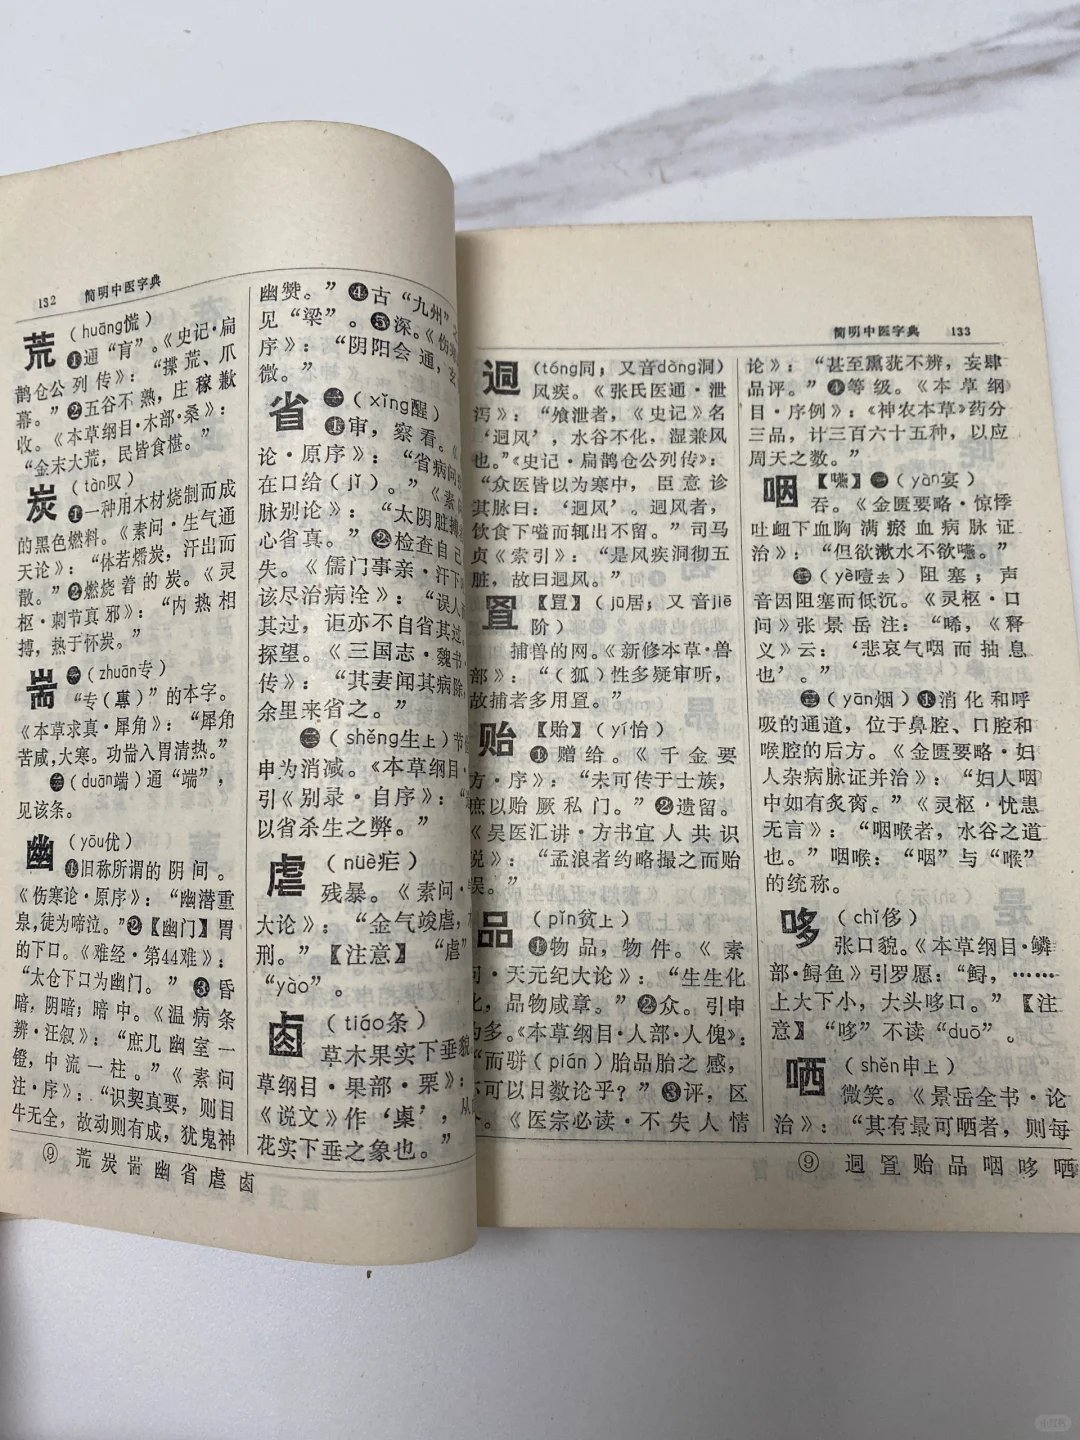 132 简明中医字典
荒 (huāng慌)
❶通“肓”。《史记·扁
鹊仓公列传》：“揲荒、爪
幕。”❷五谷不熟，庄稼歉
收。《本草纲目·木部·桑》：
“金末大荒，民皆食椹。”
炭 (tàn叹)
❶一种用木材烧制而成
的黑色燃料。《素问·生气通
天论》：“体若燔炭，汗出而
散。”❷燃烧着的炭。《灵
枢·刺节真邪》：“内热相
搏，热于怀炭。”
耑 ㊀(zhuān专)
“专(專)”的本字。
《本草求真·犀角》：“犀角
苦咸，大寒。功耑入胃清热。”
㊁(duān端)通“端”，
见该条。
幽 (yōu优)
❶旧称所谓的阴间。
《伤寒论·原序》：“幽潜重
泉，徒为啼泣。”❷【幽门】胃
的下口。《难经·第44难》：
“太仓下口为幽门。”❸昏
暗，阴暗；暗中。《温病条
辨·汪叙》：“庶几幽室一
镫，中流一柱。”《素问
注·序》：“识契真要，则目
牛无全，故动则有成，犹鬼神
幽赞。”❹古“九州”之
见“梁”。❺深。《伤寒
序》：“阴阳会通，玄
微。”
省 ㊀(xǐng醒)
❶审，察看。《
论·原序》：“省病问
在口给(jǐ)。”《素
脉别论》：“太阴脏搏
心省真。”❷检查自己
失。《儒门事亲·汗下
该尽治病诠》：“误人
其过，讵亦不自省其过。
探望。《三国志·魏书
传》：“其妻闻其病除，
余里来省之。”
㊁(shěng生上)节
申为消减。《本草纲目·
引《别录·自序》：“
以省杀生之弊。”
虐 (nüè疟)
残暴。《素问·
大论》：“金气竣虐，
刑。”【注意】“虐”
“yào”。
卤 (tiáo条)
草木果实下垂貌
草纲目·果部·栗》：
《说文》作‘㮚’，从
花实下垂之象也。”
⑨ 荒炭耑幽省虐卤
简明中医字典 133
迵 (tóng同；又音dòng洞)
风疾。《张氏医通·泄
泻》：“飧泄者，《史记》名
‘迵风’，水谷不化，湿兼风
也。”《史记·扁鹊仓公列传》：
“众医皆以为寒中，臣意诊
其脉曰：‘迵风’。迵风者，
饮食下嗌而辄出不留。”司马
贞《索引》：“是风疾洞彻五
脏，故曰迵风。”
罝 【罝】(jū居；又音jiē
阶)
捕兽的网。《新修本草·兽
部》：“(狐)性多疑审听，
故捕者多用罝。”
贻 【貽】(yí怡)
❶赠给。《千金要
方·序》：“未可传于士族，
庶以贻厥私门。”❷遗留。
《吴医汇讲·方书宜人共识
说》：“孟浪者约略撮之而贻
误。”
品 (pǐn贫上)
❶物品，物件。《素
问·天元纪大论》：“生生化
化，品物咸章。”❷众。引申
为多。《本草纲目·人部·人傀》：
“而骈(pián)胎品胎之感，
不可以日数论乎？”❸评，区
《医宗必读·不失人情
论》：“甚至熏莸不辨，妄肆
品评。”❹等级。《本草纲
目·序例》：《神农本草》药分
三品，计三百六十五种，以应
周天之数。”
咽 【嚥】㊀(yàn宴)
吞。《金匮要略·惊悸
吐衄下血胸满瘀血病脉证
治》：“但欲漱水不欲嚥。”
㊁(yè噎去)阻塞；声
音因阻塞而低沉。《灵枢·口
问》张景岳注：“唏，《释
义》云：‘悲哀气咽而抽息
也’。”
㊂(yān烟)❶消化和呼
吸的通道，位于鼻腔、口腔和
喉腔的后方。《金匮要略·妇
人杂病脉证并治》：“妇人咽
中如有炙脔。”《灵枢·忧恚
无言》：“咽喉者，水谷之道
也。”咽喉：“咽”与“喉”
的统称。
哆 (chǐ侈)
张口貌。《本草纲目·鳞
部·鲟鱼》引罗愿：“鲟，……
上大下小，大头哆口。”【注
意】“哆”不读“duō”。
哂 (shěn申上)
微笑。《景岳全书·论
治》：“其有最可哂者，则每
⑨ 迵罝贻品咽哆哂
小红书